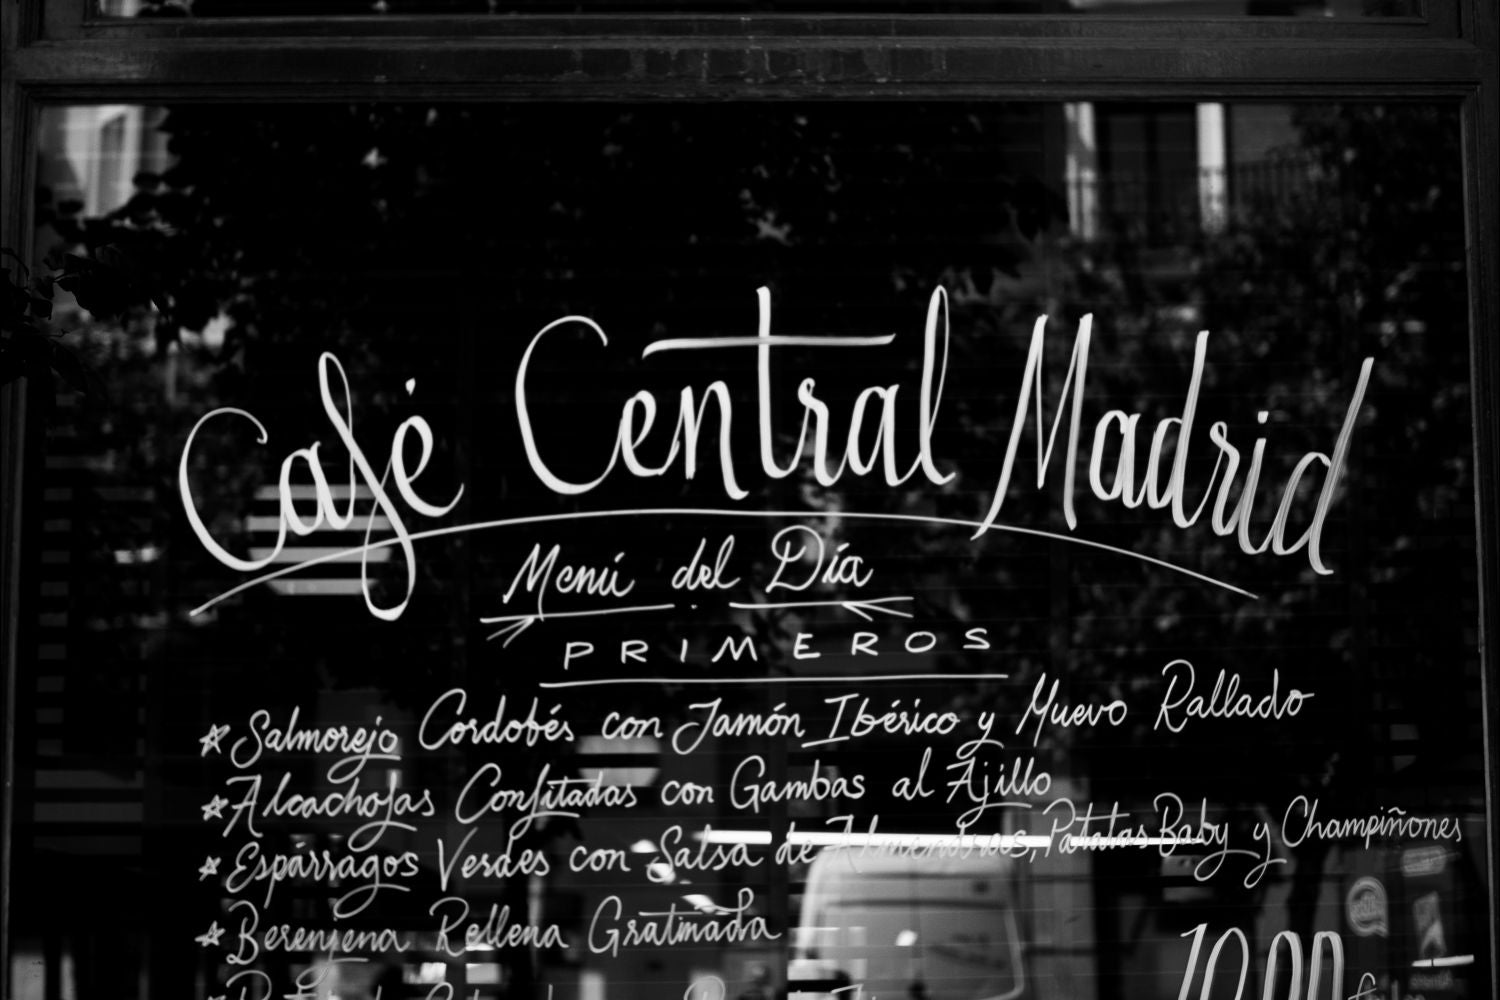 Café Central Madrid
Menú del Día
PRIMEROS
Salmorejo Cordobés con Jamón Ibérico y Huevo Rallado
Alcachofas Confitadas con Gambas al Ajillo
Espárragos Verdes con Salsa de Almendras, Patatas Baby y Champiñones
Berenjena Rellena Gratinada